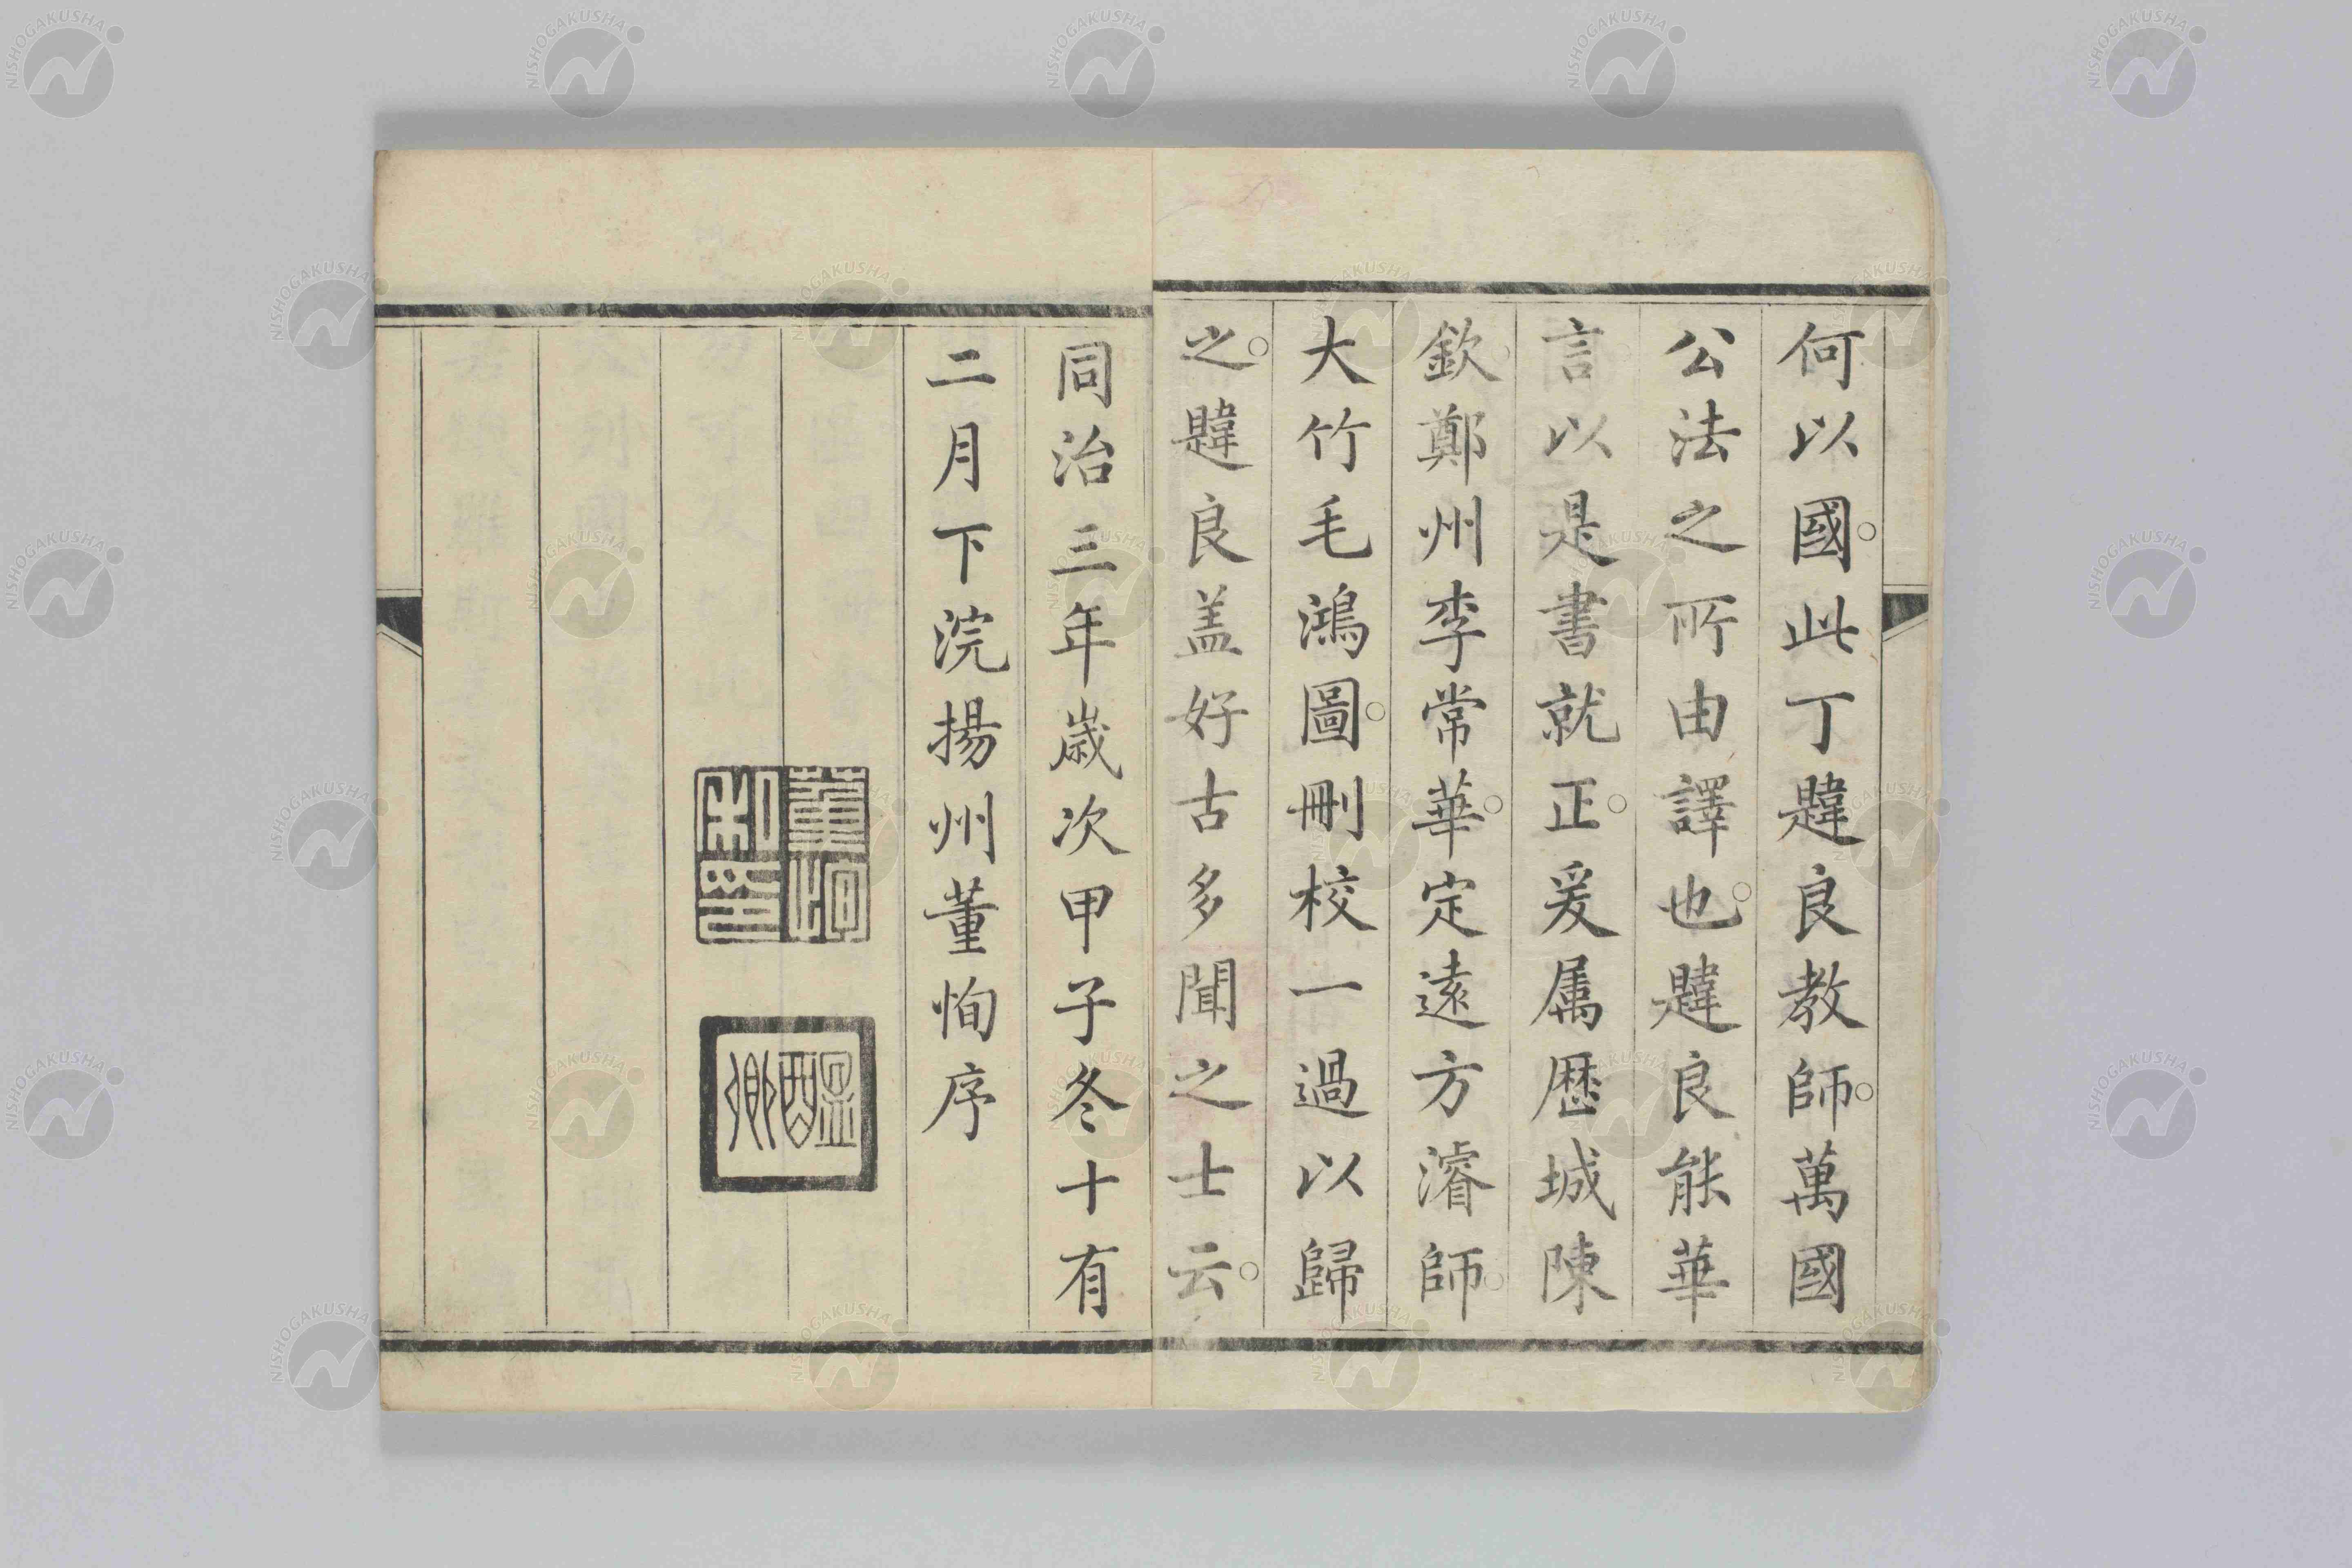 何以國。此丁韙良教師。萬國
公法之所由譯也。韙良能華
言以是書就正。爰属歴城陳
欽。鄭州李常華。定遠方濬師。
大竹毛鴻圖。刪校一過以歸
之。韙良盖好古多聞之士云。
同治三年歲次甲子冬十有
二月下浣揚州董恂序
董恂私印
醖卿
NISHOGAKUSHA